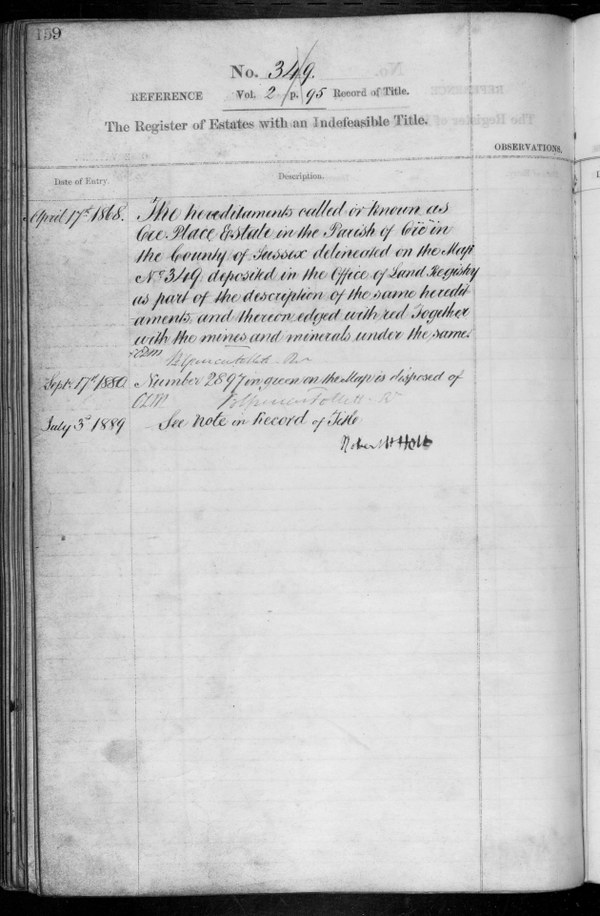 159
No. 349.
REFERENCE Vol. 2 p. 95 Record of Title.
The Register of Estates with an Indefeasible Title.
OBSERVATIONS.
Date of Entry.
Description.
April 17th 1868. The hereditaments called or known as
Place Estate in the Parish of in
the County of Sussex delineated on the Map
No 349 deposited in the Office of Land Registry
as part of the description of the same heredit
aments, and thereon edged with red Together
with the mines and minerals under the same.
Sept. 17th 1880. Number 2897 in green on the Map is disposed of
July 3d 1889 See Note in Record of Title
Robert H Holt